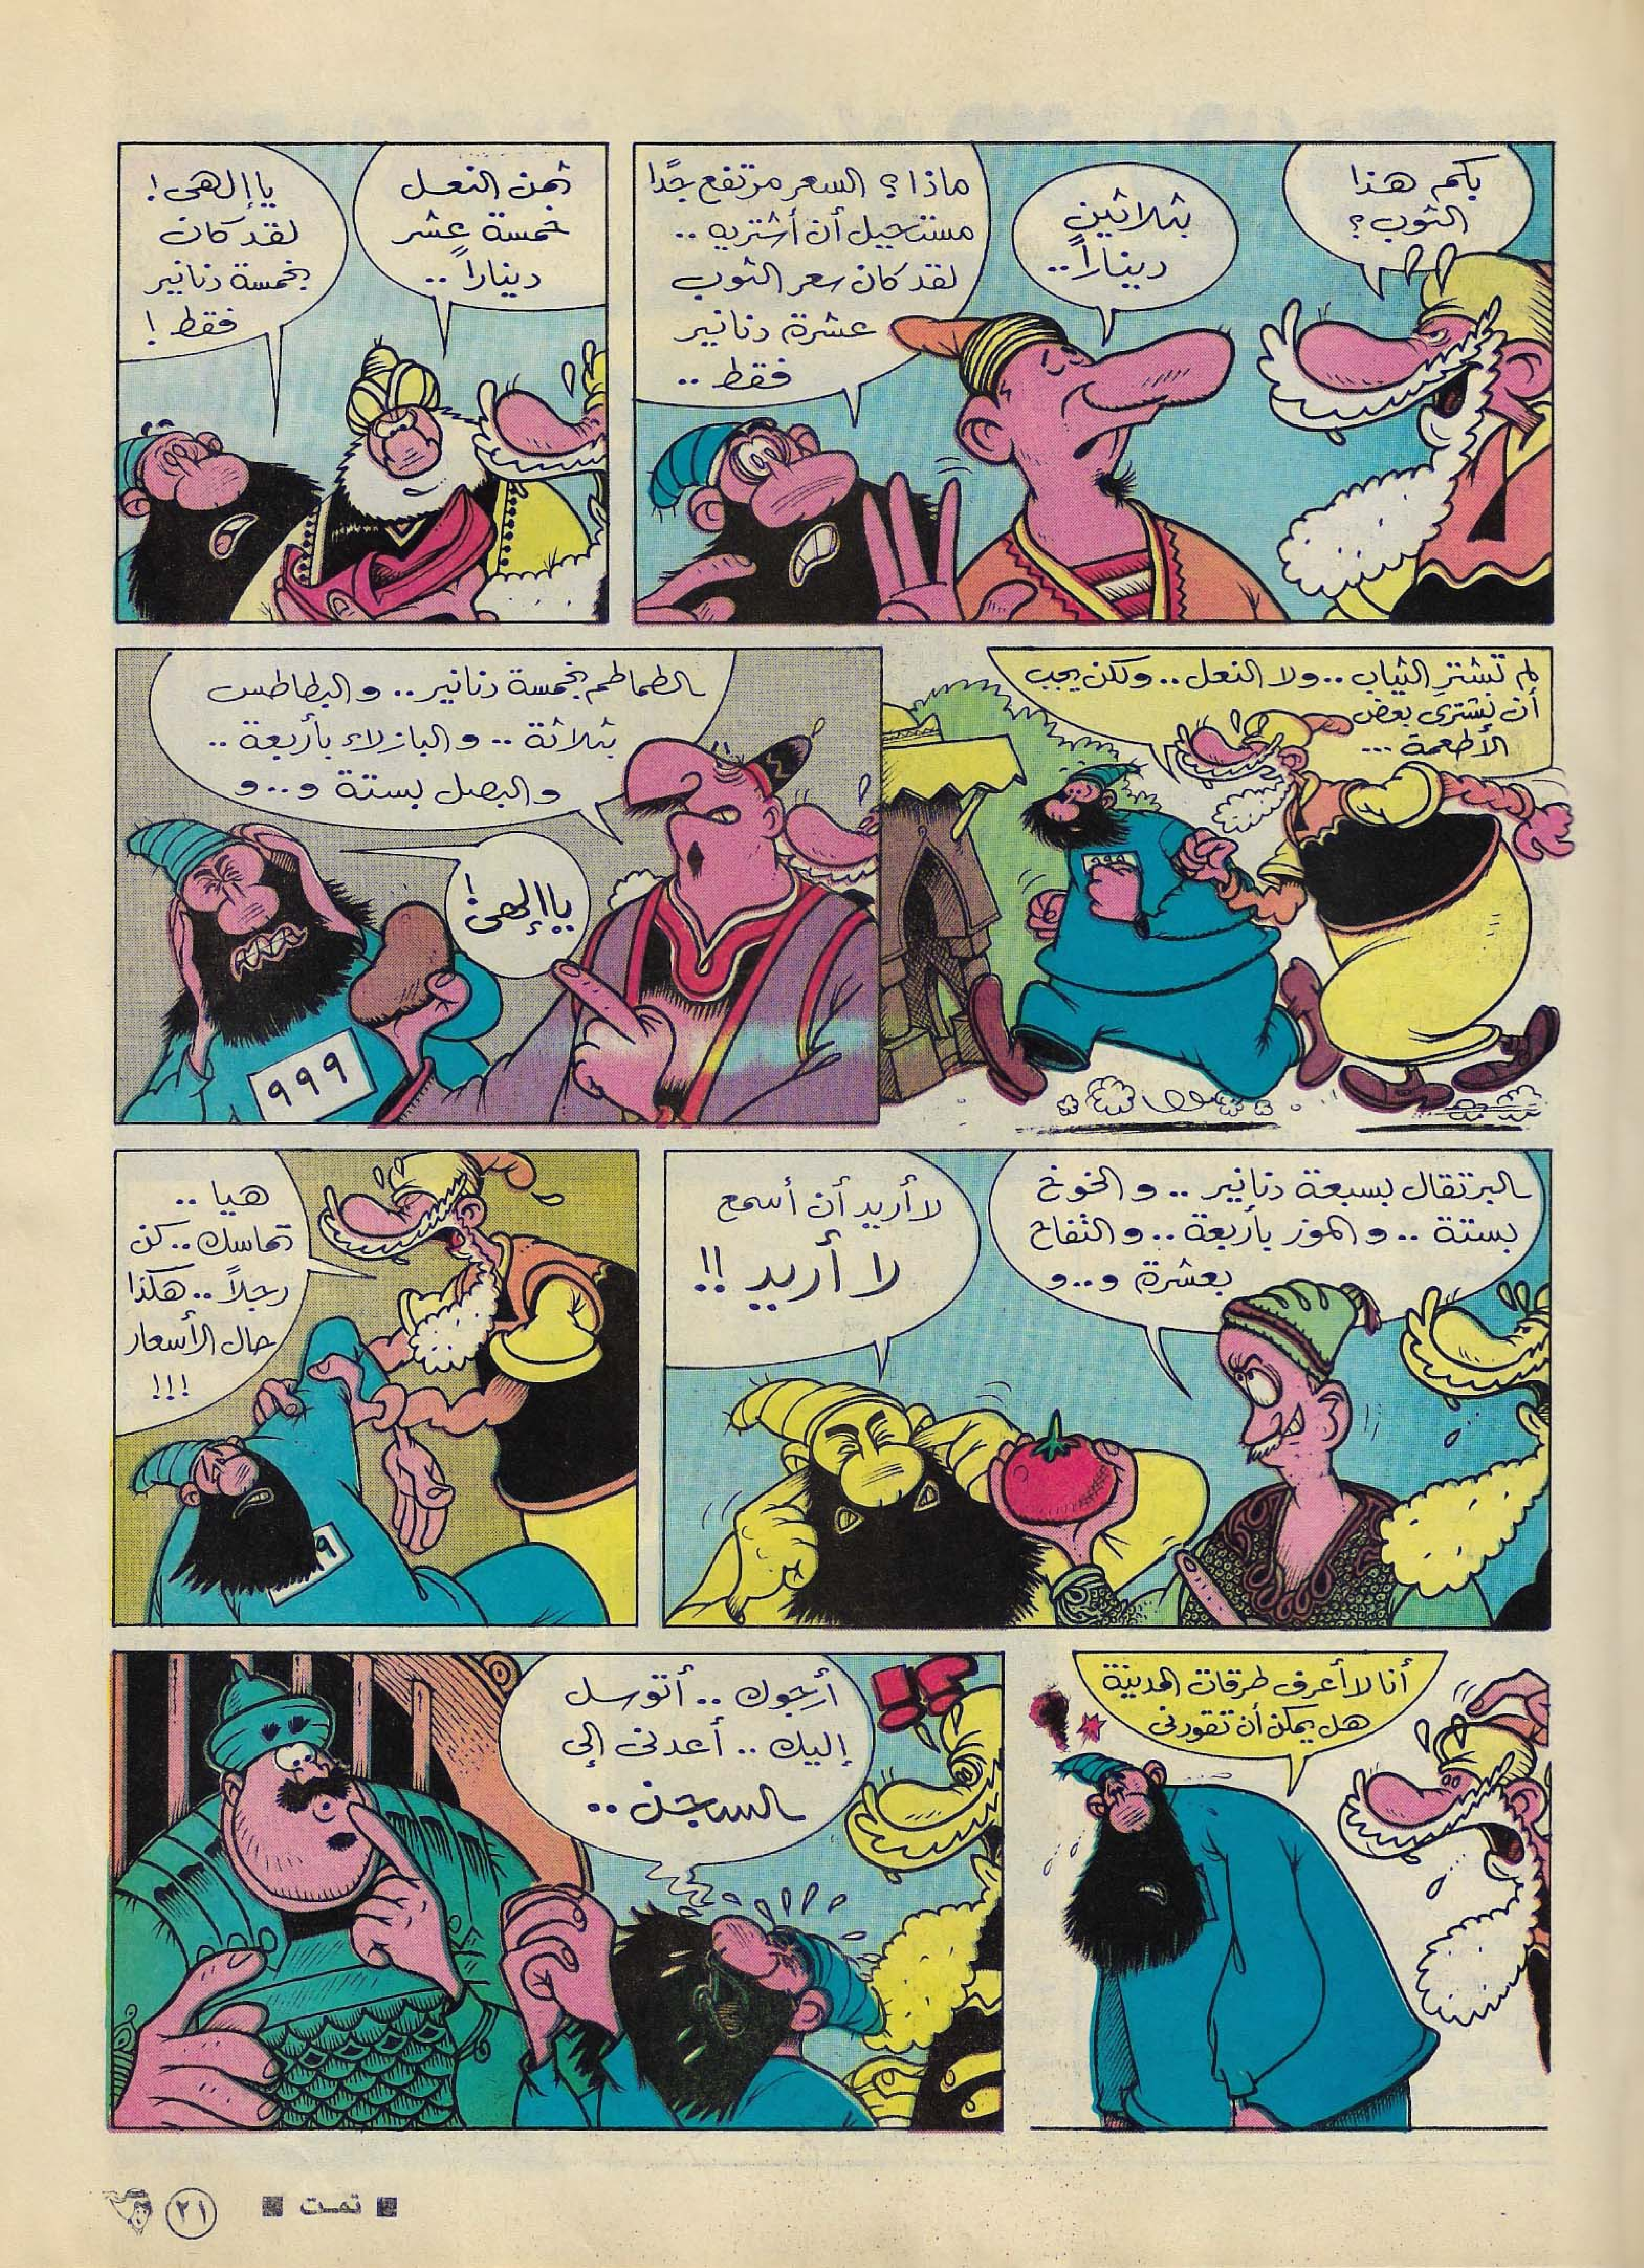 بكم هذا
الثوب؟
بثلاثين
ديناراً..
ماذا؟ السعر مرتفع جدًا
مستحيل أن أشتريه ..
لقد كان سعر الثوب
عشرة دنانير
فقط ..
ثمن النعل
خمسة عشر
ديناراً ..
يا إلهى!
لقد كان
بخمسة دنانير
فقط!
لم تشترِ الثياب .. ولا النعل .. ولكن يجب
أن تشترى بعض
الأطعمة ...
الطماطم بخمسة دنانير .. والبطاطس
بثلاثة .. والبازلاء بأربعة ..
والبصل بستة و..و
يا إلهى!
٩٩٩
البرتقال بسبعة دنانير .. والخوخ
بستة .. والموز بأربعة .. والتفاح
بعشرة و..و
لا أريد أن أسمع
لا أريد !!
هيا ..
تماسك .. كن
رجلاً .. هكذا
حال الأسعار
!!!
أنا لا أعرف طرقات المدينة
هل يمكن أن تقودنى
أرجوك .. أتوسل
إليك .. أعدنى إلى
السجن ..
!؟
تمت
٢١